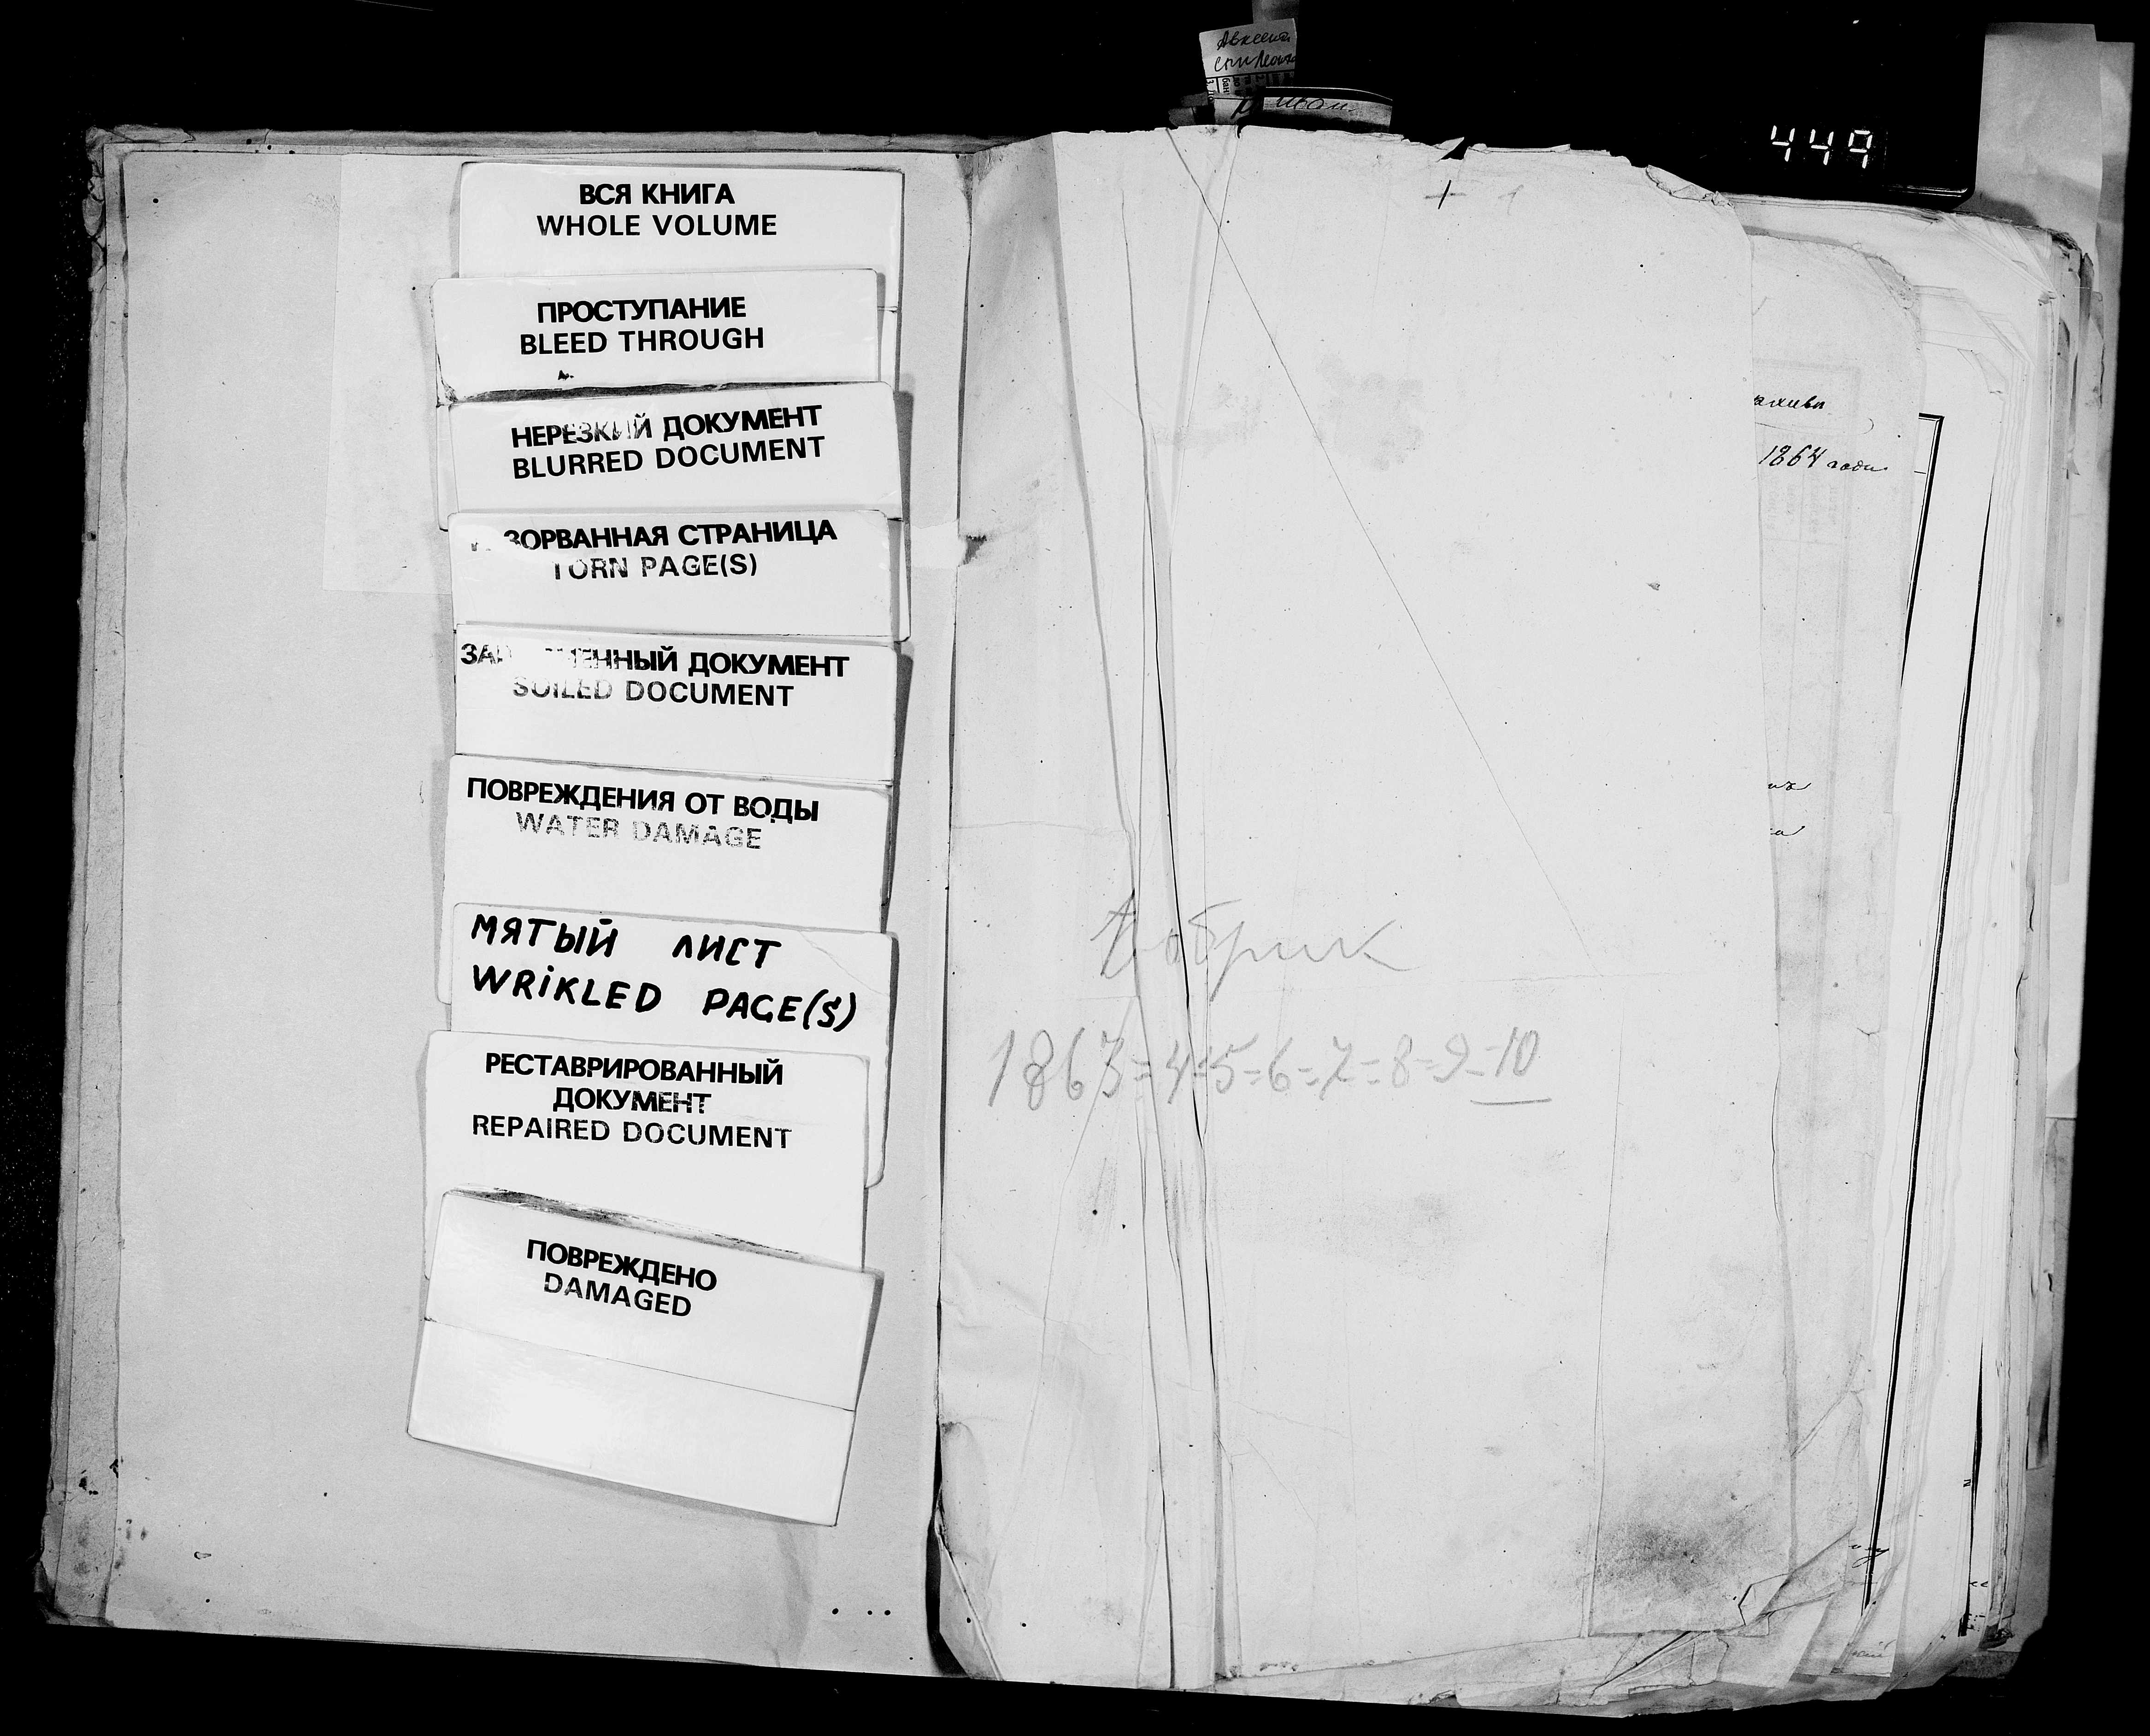 449
ВСЯ КНИГА
WHOLE VOLUME
ПРОСТУПАНИЕ
BLEED THROUGH
НЕРЕЗКИЙ ДОКУМЕНТ
BLURRED DOCUMENT
ЗОРВАННАЯ СТРАНИЦА
TORN PAGE(S)
ЗА ЕННЫЙ ДОКУМЕНТ
SOILED DOCUMENT
ПОВРЕЖДЕНИЯ ОТ ВОДЫ
WATER DAMAGE
МЯТЫЙ ЛИСТ
WRIKLED PAGE(S)
РЕСТАВРИРОВАННЫЙ
ДОКУМЕНТ
REPAIRED DOCUMENT
ПОВРЕЖДЕНО
DAMAGED
+ 1
1863=4=5=6=7=8=9=10
1864 года